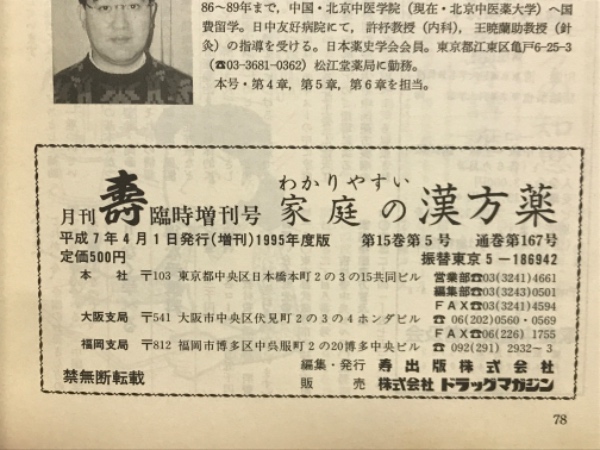 86~89年まで,中国・北京中医学院(現在・北京中医薬大学)へ国
費留学。日中友好病院にて,許杼教授(内科),王暁蘭助教授(針
灸)の指導を受ける。日本薬史学会会員。東京都江東区亀戸6-25-3
(☎03-3681-0362)松江堂薬局に勤務。
本号・第4章,第5章,第6章を担当。
わかりやすい
月刊 壽 臨時増刊号 家庭の漢方薬
平成7年4月1日発行(増刊)1995年度版 第15巻第5号 通巻第167号
定価500円 振替東京5-186942
本社 〒103 東京都中央区日本橋本町2の3の15共同ビル 営業部☎03(3241)4661
編集部☎03(3243)0501
FAX☎03(3241)4594
大阪支局 〒541 大阪市中央区伏見町2の3の4ホンダビル ☎ 06(202)0560・0569
FAX☎06(226)1755
福岡支局 〒812 福岡市博多区中呉服町2の20博多中央ビル ☎ 092(291)2932~3
編集・発行 寿出版株式会社
禁無断転載 販売 株式会社ドラッグマガジン
78